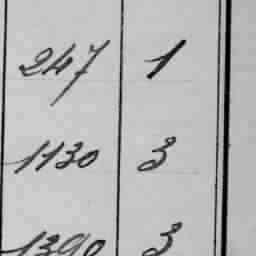 247 1
1130 3
1390 3